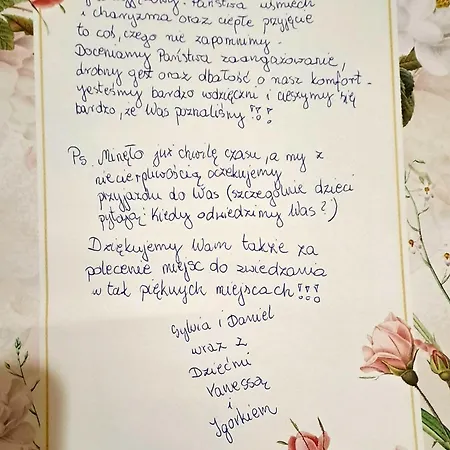 Państwa uśmiech
i charyzma oraz ciepłe przyjęcie
to coś, czego nie zapomnimy.
Doceniamy Państwa zaangażowanie,
drobny gest oraz dbałość o nasz komfort -
jesteśmy bardzo wdzięczni i cieszymy się
bardzo, że Was poznaliśmy!!!
Ps. Minęło już chwilę czasu, a my z
niecierpliwością oczekujemy
przyjazdu do Was (szczególnie dzieci
pytają: Kiedy odwiedzimy Was?)
Dziękujemy Wam także za
polecenie miejsc do zwiedzania
w tak pięknych miejscach!!!
Sylwia i Daniel
wraz z
Dziećmi
Vanessą
i
Igorkiem